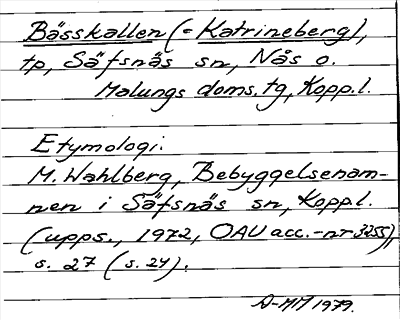 Bässkallen (= Katrineberg),
tp, Säfsnäs sn, Nås o.
Malungs doms. tg, Kopp.l.
Etymologi:
M. Wahlberg, Bebyggelsenam-
nen i Säfsnäs sn, Kopp.l.
(upps., 1972, OAU acc.-nr 3255),
s. 27 (s. 24).
A-MM 1979.